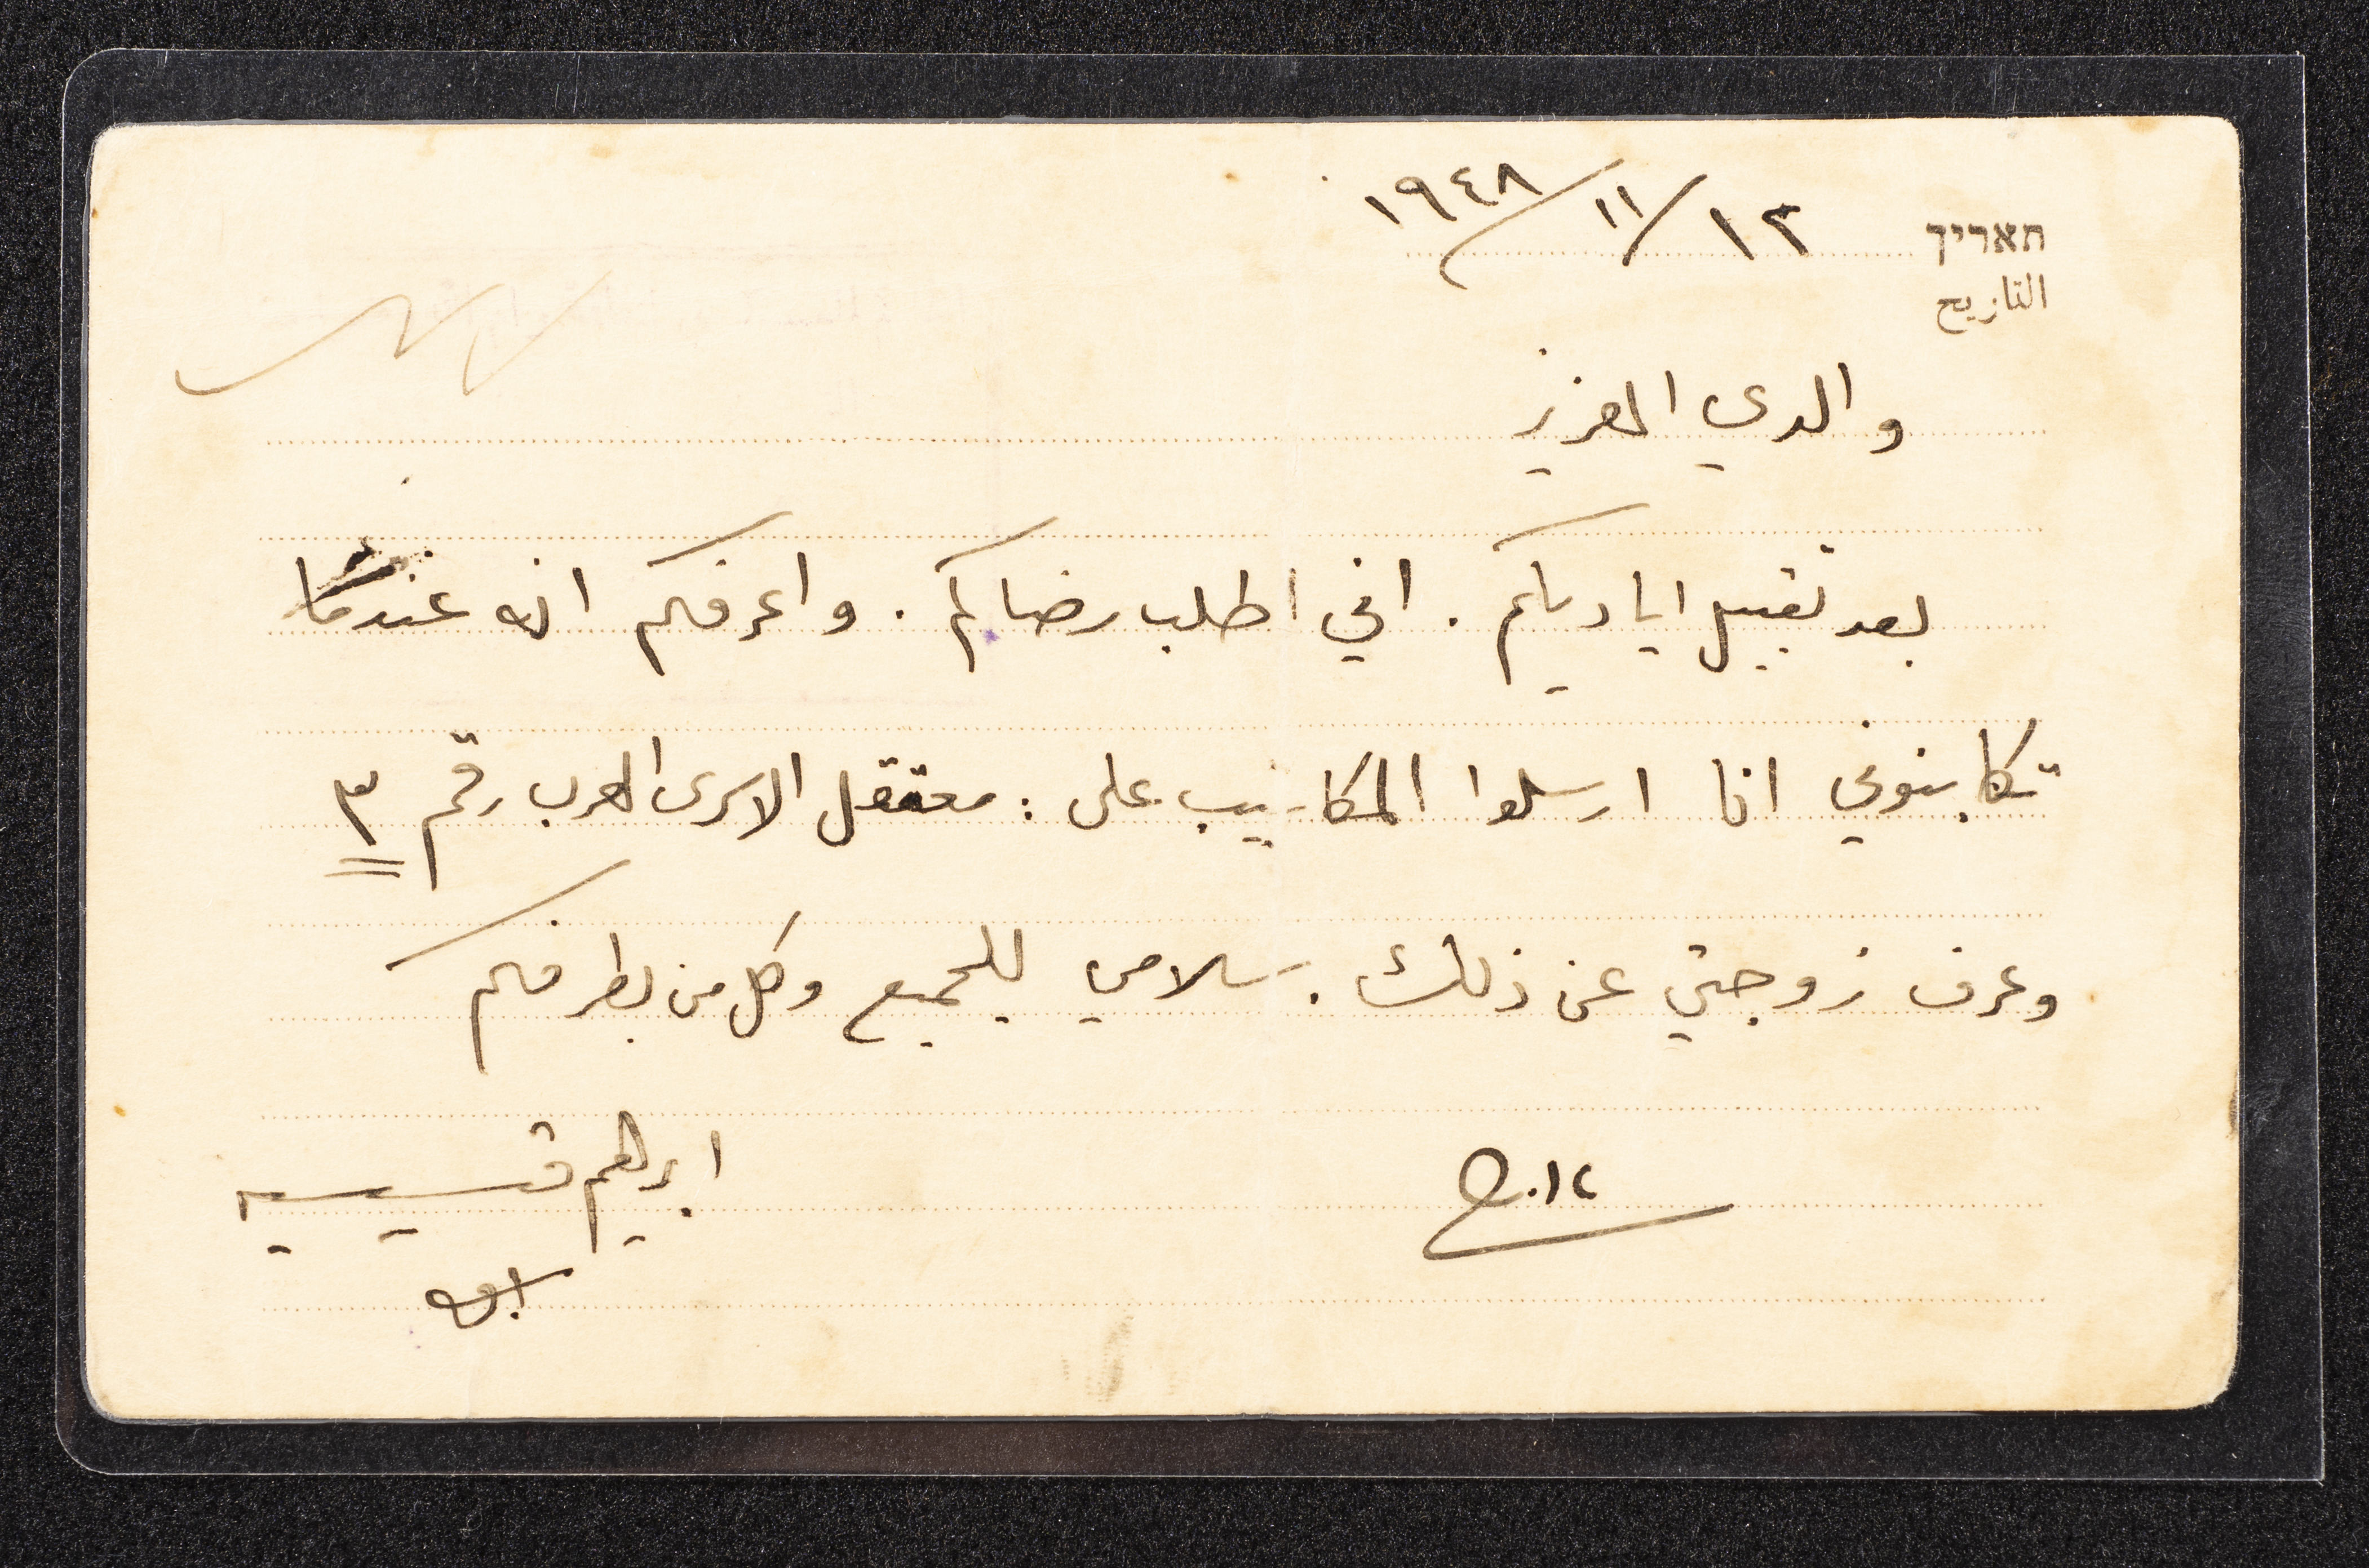 תאריך ١٢/١١/١٩٤٨
التاريخ
والدي العزيز
بعد تقبيل اياديكم . اني اطلب رضاكم . واعرفكم انه عندما
تكاتبوني انا ارسلوا المكاتيب على : معتقل الاسرى العرب رقم ٣
وعرف زوجتي عن ذلك . سلامي للجميع وكل من بطرفكم
ابرهيم قسيسيه